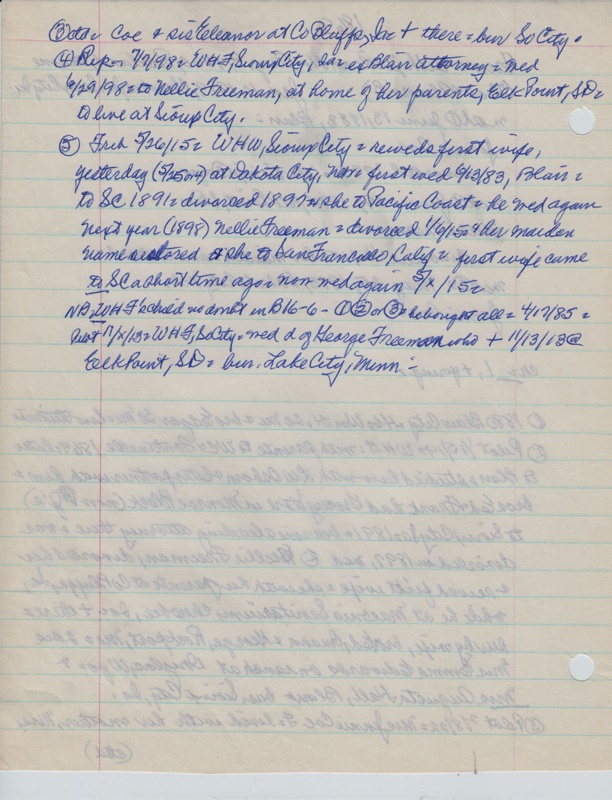 ③ cta = Coe & sis Eleanor at Co Bluffs, Ia & there = bur So City.
④ Rep = 7/7/98 = WHF, Sioux City, Ia = ex Blair attorney = wed
6/29/98 = to Nellie Freeman, at home of her parents, Elk Point, SD =
to live at Sioux City.
⑤ Trib 5/26/15 = WHW, Sioux City = reweds first wife,
yesterday (5/25) at Dakota City, = first wed 9/13/83, Blair =
to SC 1891 = divorced 1897 & she to Pacific Coast = he wed again
next year (1898) Nellie Freeman = divorced 1/6/15 & her maiden
name restored & she to San Francisco Calif = first wife came
to SC a short time ago = now wed again 5/x/15 =
NB: WHF = no doubt in B16-6- ① ② or ③ = he bought all = 4/17/85 =
11/x/13 = WHF, So City = wed d of George Freeman who + 11/13/13 @
Elk Point, SD = bur. Lake City, Minn =